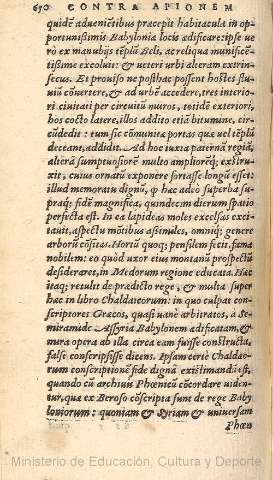 650 CONTRA APIONEM
quidē aduenictibus præcepit habitacula in op-
portunißimis Babylonia locis ædificare: ipse ue
rò ex manubijs tēpli Beli, ac reliqua munificē-
tißime excoluit: & ueteri urbi alteram extrin-
secus. Et prouiso ne posthac possent hostes flu-
uiū cōuertere, & ad urbē accedere, tres interio-
ri ciuitati per circuitū muros, totidē exteriori,
hos cocto latere, illos addito etiā bitumine, cir-
cūdedit: tum sic cōmunitæ portas quæ uel tēplū
deceant, addidit. Ad hoc iuxta paternā regiā,
alterā sumptuosiorē multo ampliorēq; extru-
xit, cuius ornatū exponere fortasse longū esset:
illud memoratu dignū, ꝙ hæc adeò superba su-
praq; fidē magnifica, quindecim dierum spatio
perfecta est. In ea lapideas moles excelsas exci-
tauit, aspectu mōtibus aßimiles, omniq; genere
arborū cōsitas. Hortū quoq; pensilem fecit, fama
nobilem: eo quòd uxor eius montanū prospectū
desideraret, in Medorum regione educata. Hæc
itaq; retulit de prædicto rege, & multa super
hæc in libro Chaldaicorum: in quo culpat con-
scriptores Græcos, quasi uanè arbitratos, a Se-
miramide Aßyria Babylonem ædificatam, &
mira opera ab illa circa eam fuisse constructa,
falsò conscripsisse dicens. Ipsam certè Chaldæo-
rum conscriptionē fide dignā existimandū est,
quando cū archiuis Phœnicū cōcordare uiden-
tur, quæ ex Beroso cōscripta sunt de rege Baby
loniorum: quoniam & Syriam & uniuersam
Phœn
Ministerio de Educación, Cultura y Deporte